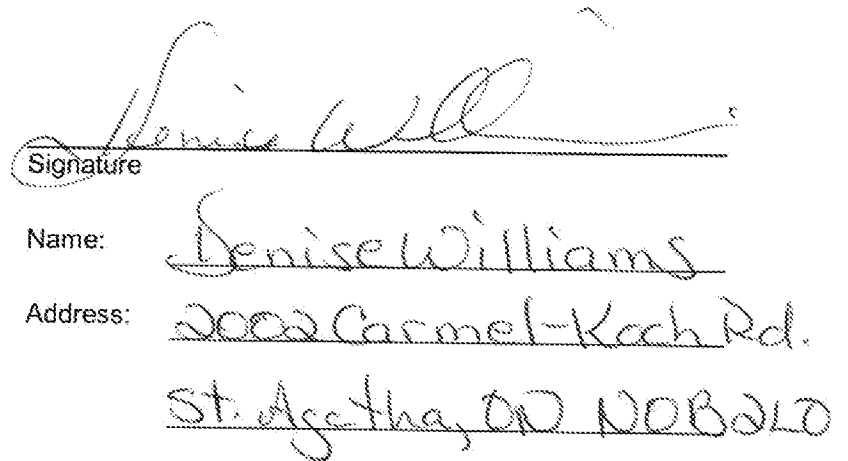 Denise Will
Signature
Name: Denise Williams
Address: 2002 Carmel-Koch Rd.
St. Agatha, ON N0B2L0